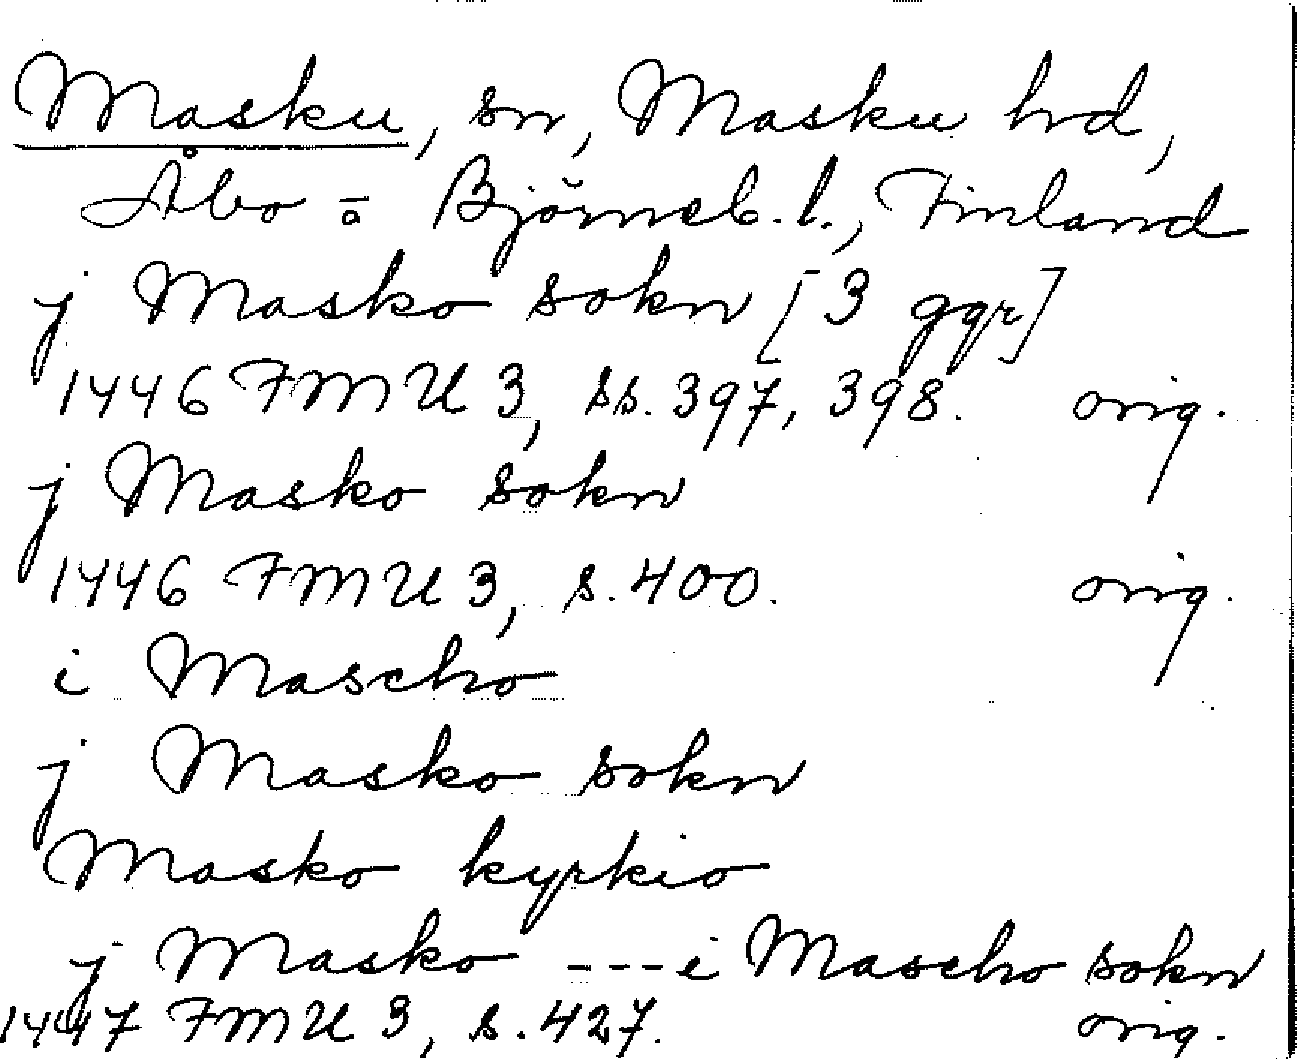 Masku, sn, Masku hrd,
Åbo - o Björneb. l., Finland
j Masko sokn [3 ggr]
1446 FMU 3, ss. 397, 398. orig.
j Masko sokn
1446 FMU 3, s. 400. orig.
i Mascho
j Masko sokn
Masko kyrkio
j Masko --- i Mascho sokn
1447 FMU 3, s. 427. orig.